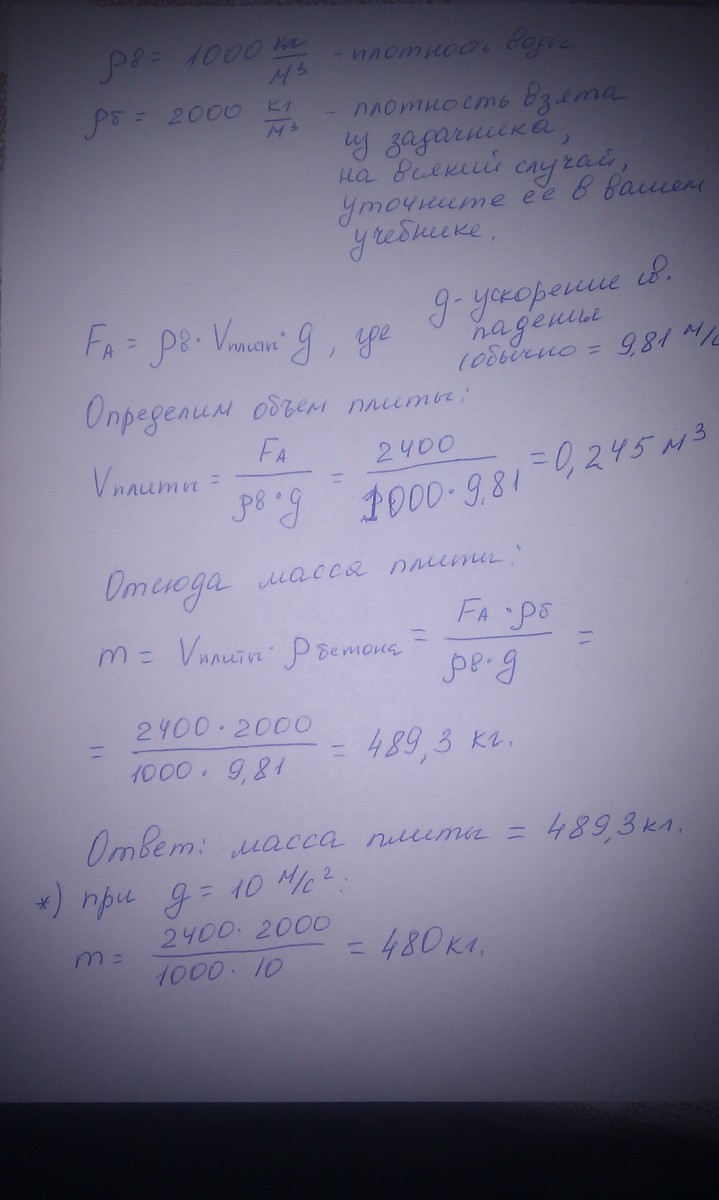 ρв = 1000 кг/м³ - плотность воды
ρб = 2000 кг/м³ - плотность взята
из задачника,
на всякий случай,
уточните её в вашем
учебнике.
FA = ρв · Vплиты · g, где g - ускорение св.
падения
(обычно = 9,81 м/с
Определим объем плиты:
Vплиты = FA / ρв · g = 2400 / 1000 · 9,81 = 0,245 м³
Отсюда масса плиты:
m = Vплиты · ρбетона = FA · ρб / ρв · g =
= 2400 · 2000 / 1000 · 9,81 = 489,3 кг.
Ответ: масса плиты = 489,3 кг.
*) при g = 10 м/с²:
m = 2400 · 2000 / 1000 · 10 = 480 кг.